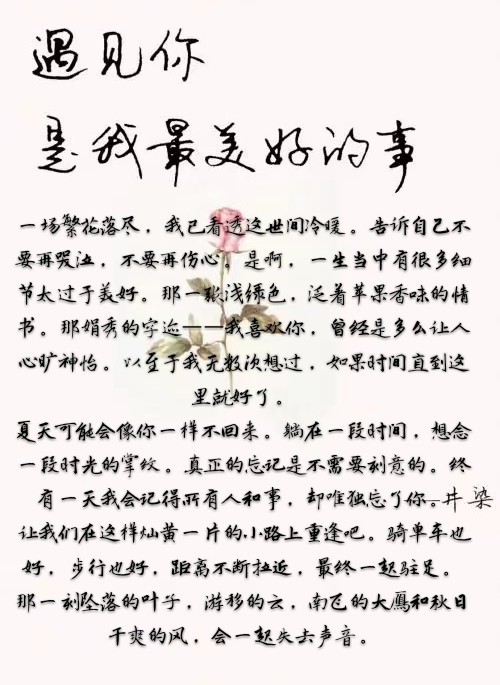 遇见你
是我最美好的事
一场繁花落尽，我已看透这世间冷暖。告诉自己不
要再哭泣，不要再伤心。是啊，一生当中有很多细
节太过于美好。那一张浅绿色，泛着苹果香味的情
书。那娟秀的字迹——我喜欢你，曾经是多么让人
心旷神怡。以至于我无数次想过，如果时间直到这
里就好了。
夏天可能会像你一样不回来。躺在一段时间，想念
一段时光的掌纹。真正的忘记是不需要刻意的。终
有一天我会记得所有人和事，却唯独忘了你。井染
让我们在这样灿黄一片的小路上重逢吧。骑单车也
好，步行也好，距离不断拉近，最终一起驻足。
那一刻坠落的叶子，游移的云，南飞的大鹰和秋日
干爽的风，会一起失去声音。